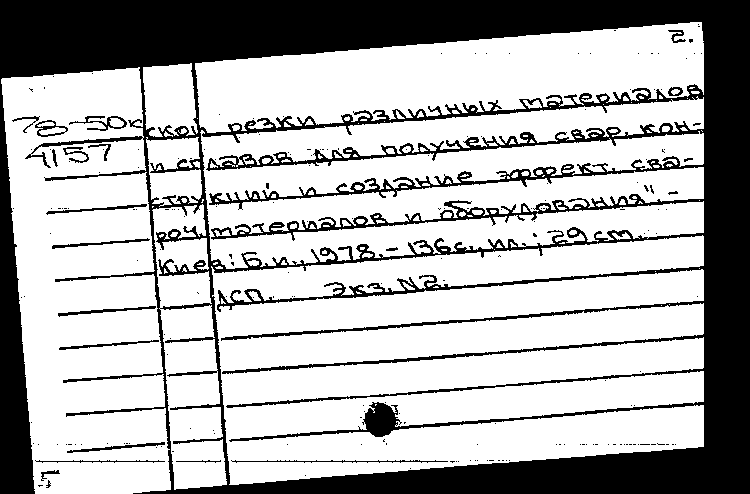 2.
78-50к
4157
ской резки различных материалов
и сплавов для получения свар. кон-
струкций и создание эффект. сва-
роч. материалов и оборудования". -
Киев: Б.и., 1978. - 136с., ил.; 29 см.
ДСП. Экз. N2.
5